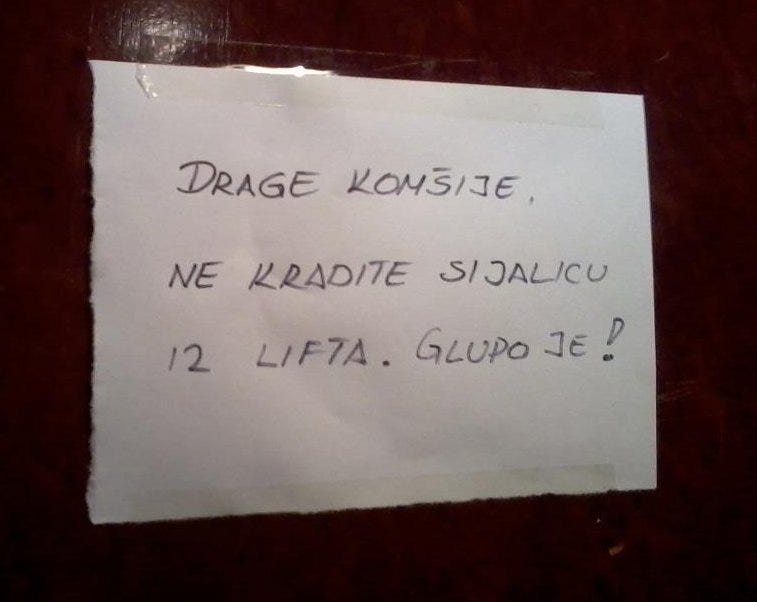 DRAGE KOMŠIJE,
NE KRADITE SIJALICU
IZ LIFTA. GLUPO JE!